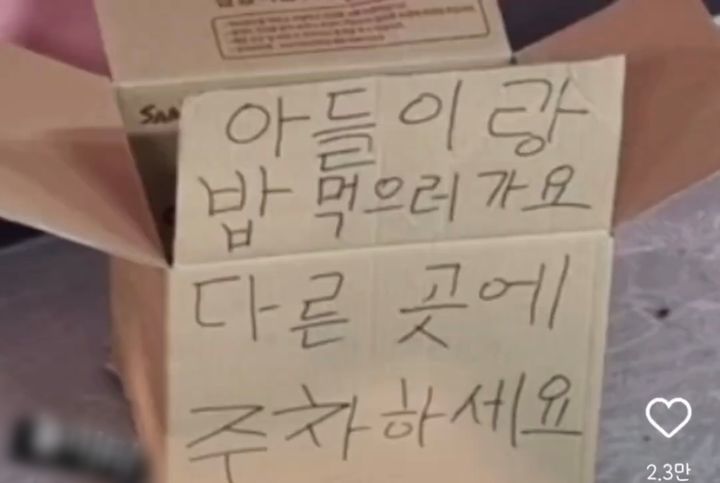 아들이랑
밥 먹으러 가요
다른 곳에
주차하세요
2.3만